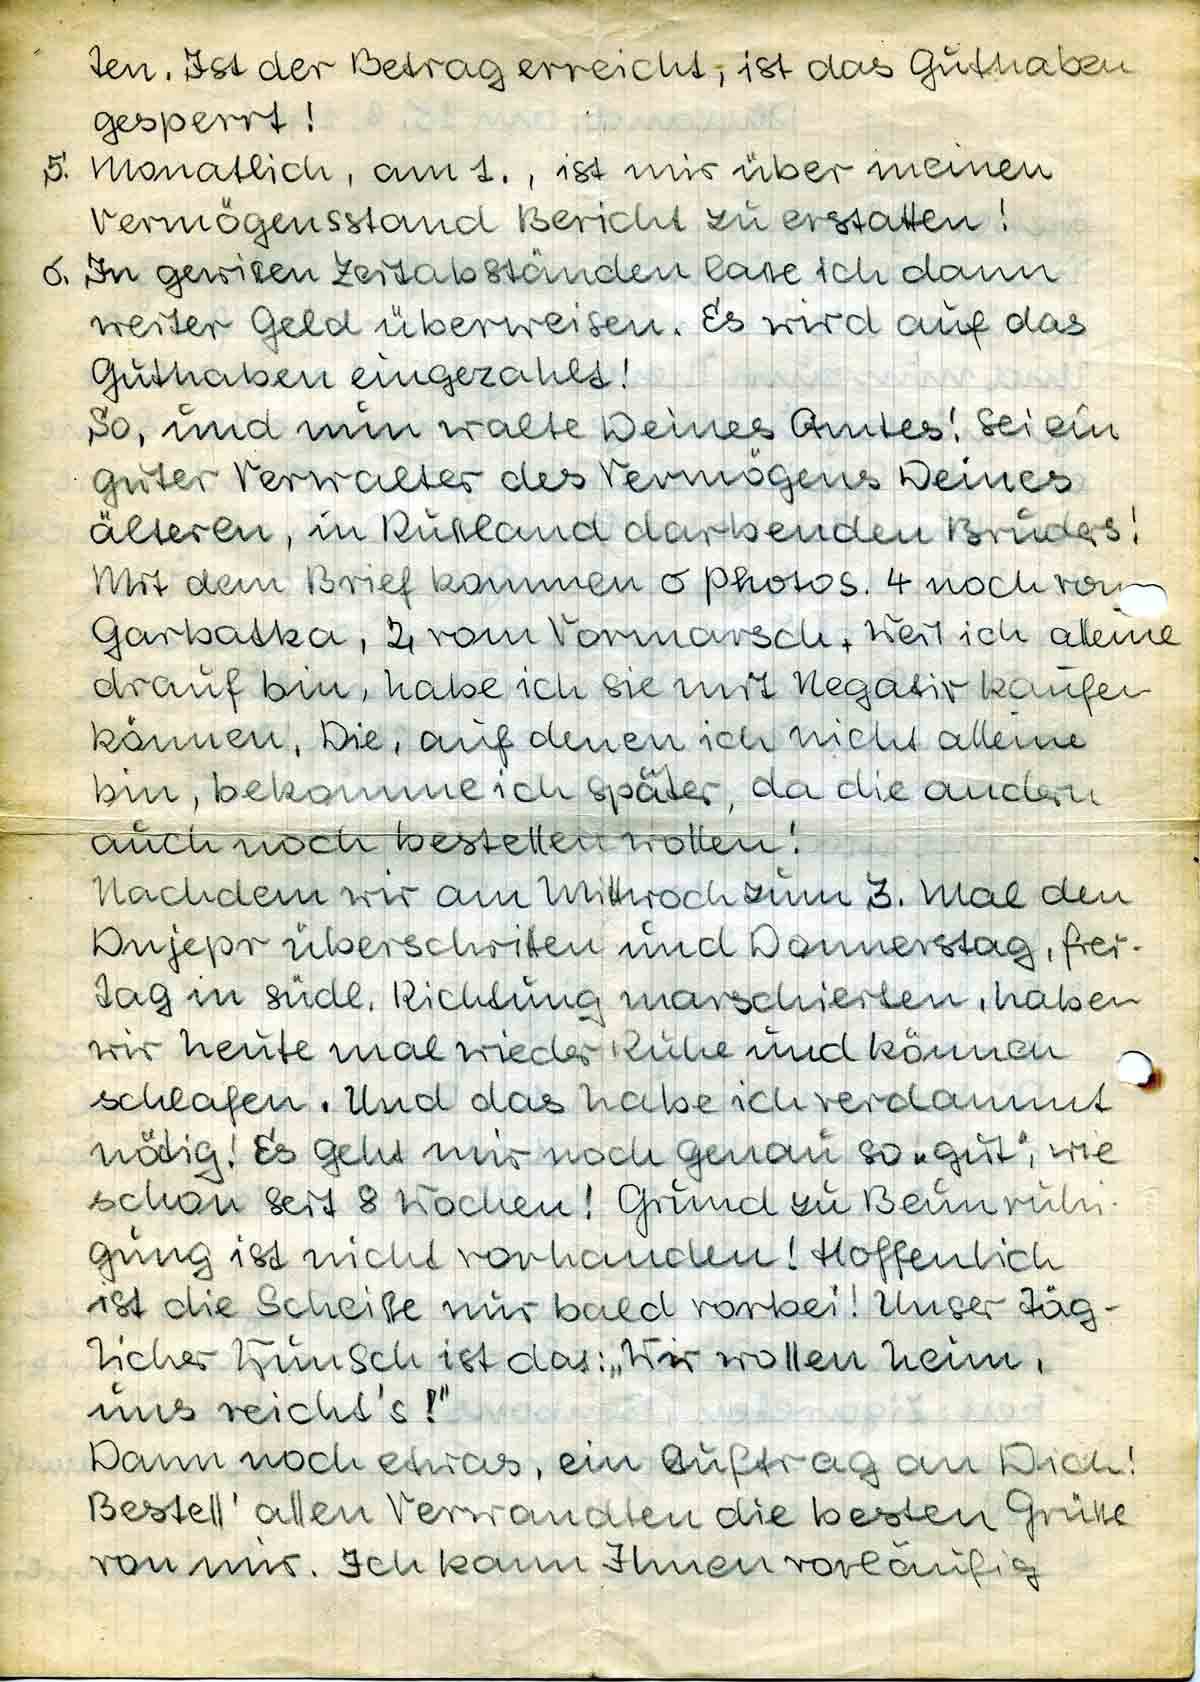 ten. Ist der Betrag erreicht, ist das Guthaben
gesperrt!
5. Monatlich, am 1., ist mir über meinen
Vermögensstand Bericht zu erstatten!
6. In gewißen Zeitabständen laße ich dann
weiter Geld überweisen. Es wird auf das
Guthaben eingezahlt!
So, und nun walte Deines Amtes! Sei ein
guter Verwalter des Vermögens Deines
älteren, in Rußland darbenden Bruders!
Mit dem Brief kommen 6 Photos. 4 noch von
Garbatka, 2 vom Vormarsch. Weil ich alleine
drauf bin, habe ich sie mit Negativ kaufen
können. Die, auf denen ich nicht alleine
bin, bekomme ich später, da die andern
auch noch bestellen wollen!
Nachdem wir am Mittwoch zum 3. Mal den
Dnjepr überschritten und Donnerstag, Frei-
tag in südl. Richtung marschierten, haben
wir heute mal wieder Ruhe und können
schlafen. Und das habe ich verdammt
nötig! Es geht mir noch genau so „gut“, wie
schon seit 8 Wochen! Grund zu Beunruhi-
gung ist nicht vorhanden! Hoffentlich
ist die Scheiße nur bald vorbei! Unser täg-
licher Wunsch ist das: „Wir wollen heim,
uns reicht's!“
Dann noch etwas, ein Auftrag an Dich!
Bestell' allen Verwandten die besten Grüße
von mir. Ich kann Ihnen vorläufig